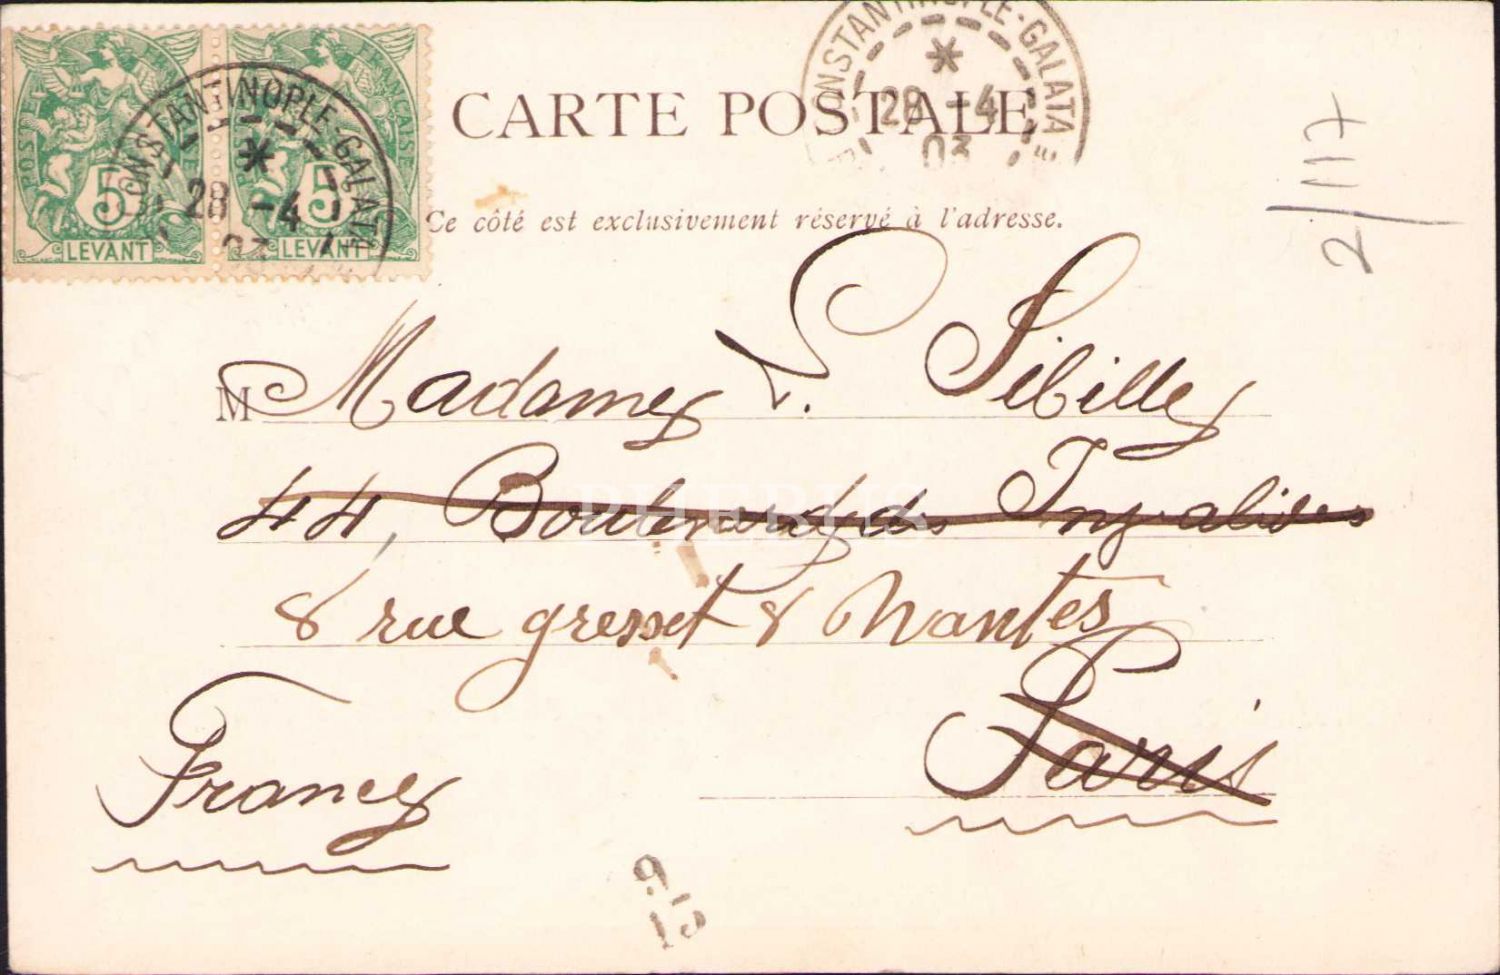 POSTE FRANÇAISE
5 5
LEVANT LEVANT
CONSTANTINOPLE-GALATA
28 -4
03
CONSTANTINOPLE-GALATA
28 -4
03
CARTE POSTALE
Ce côté est exclusivement réservé à l'adresse.
2/117
M Madame V. Sibille
44, Boulevard des Invalides
8 rue gresset 8 Nantes
Paris
France
9
15
PHEBUS